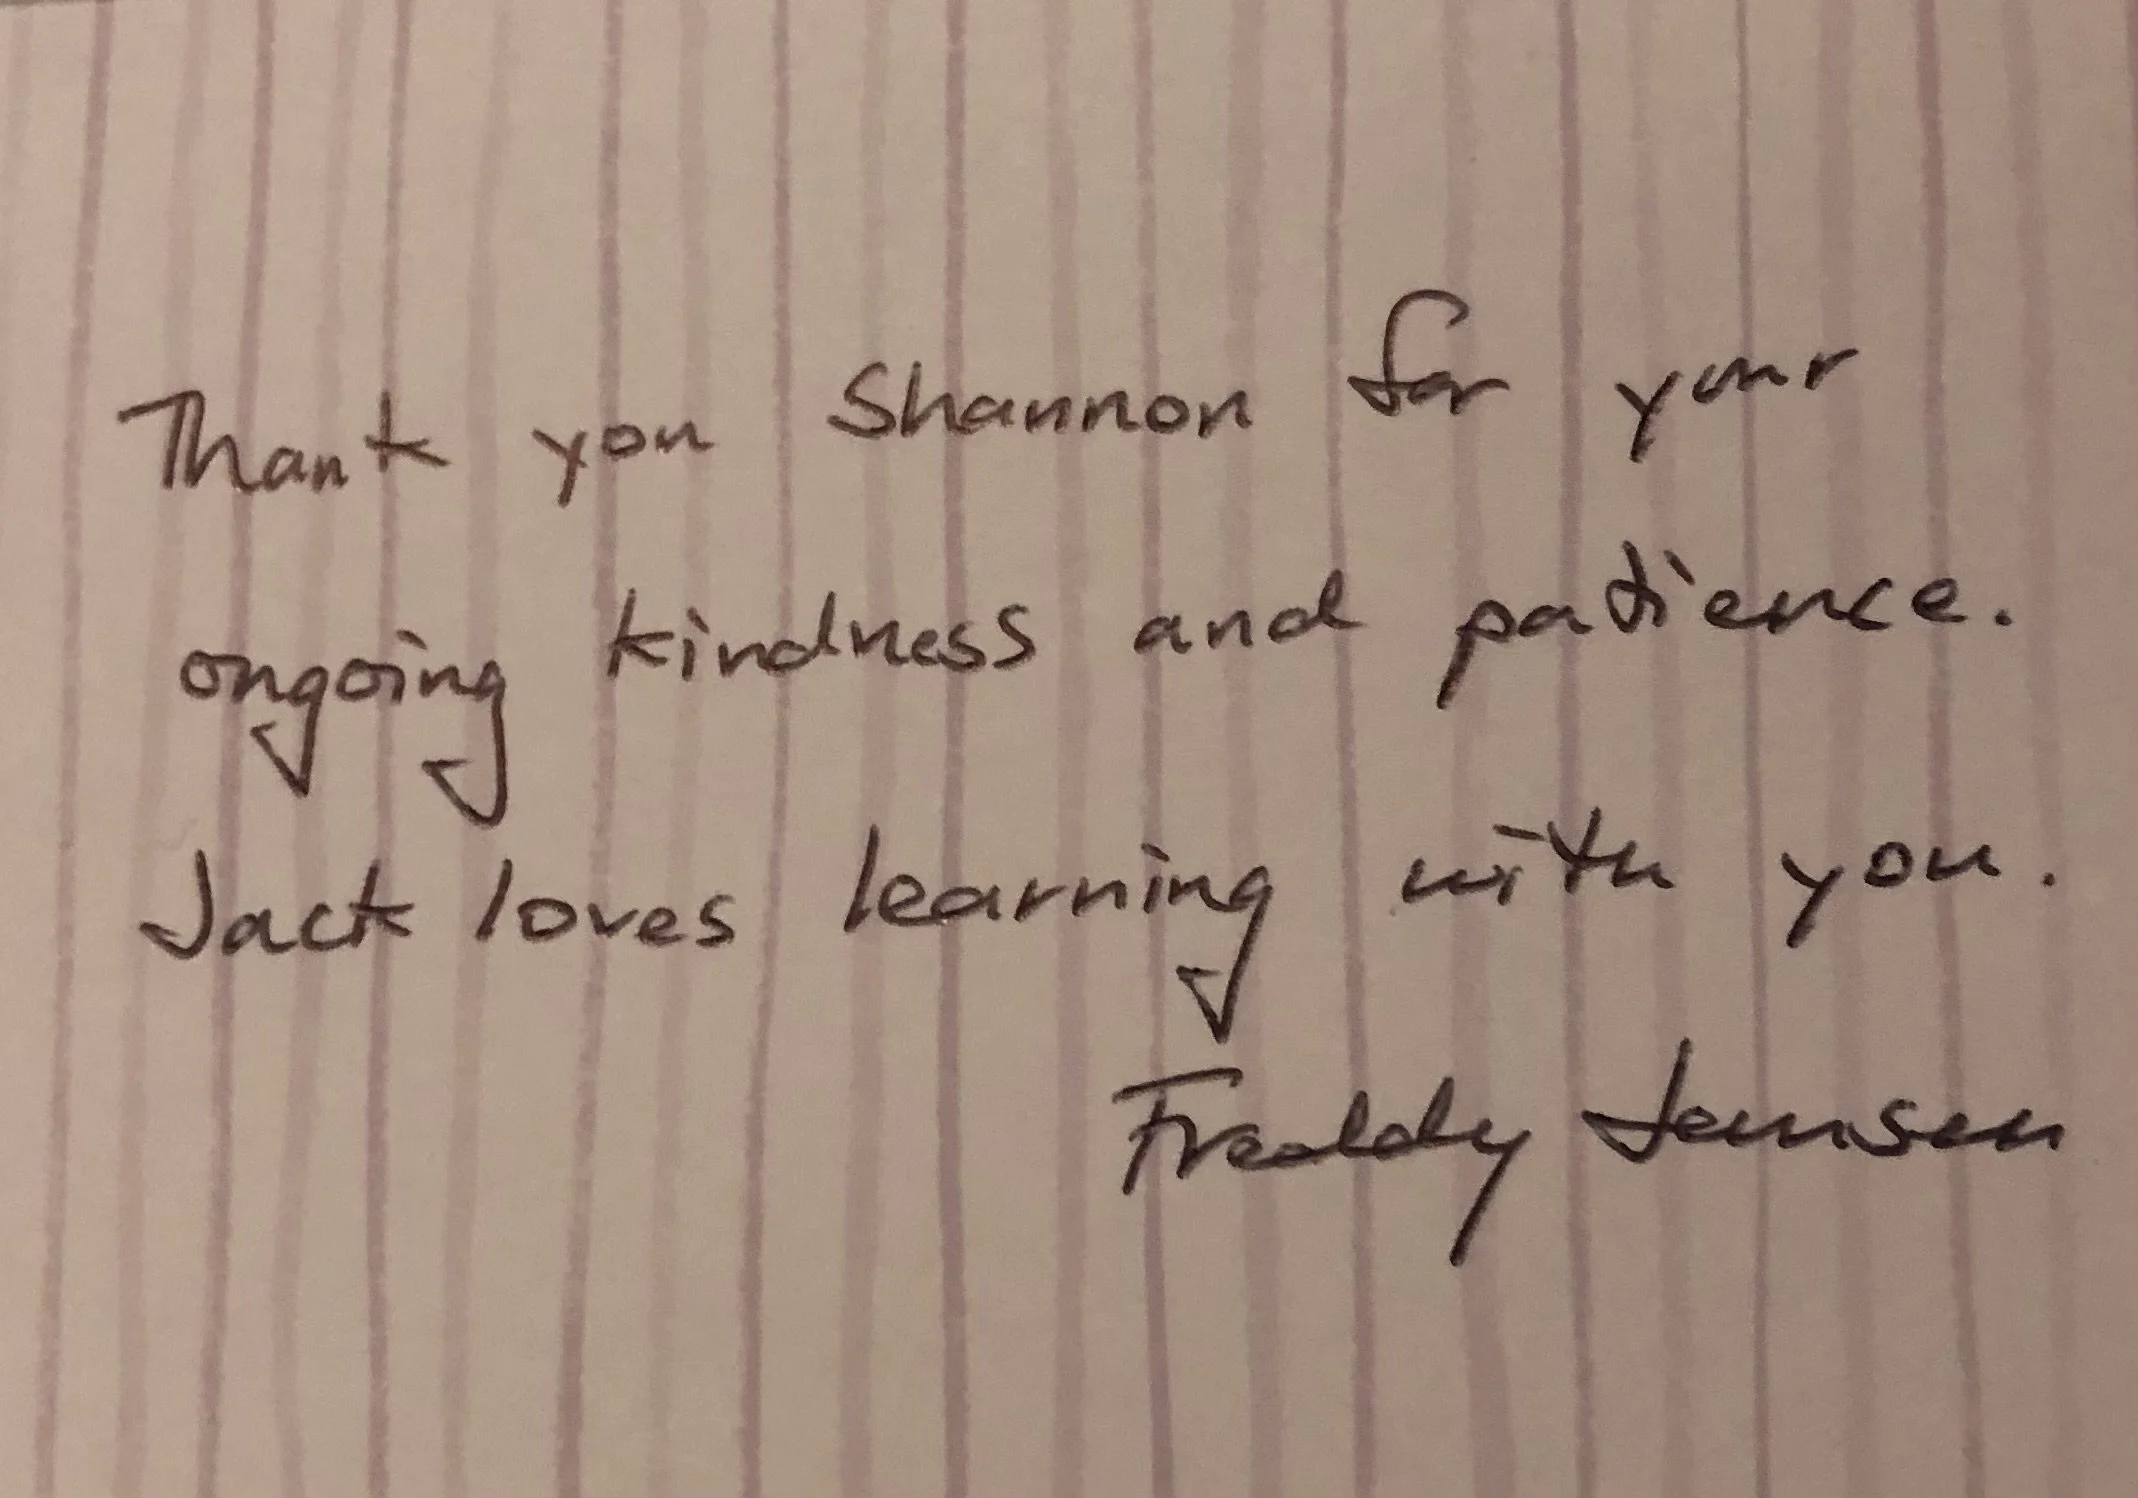 Thank you Shannon for your
ongoing kindness and patience.
Jack loves learning with you.
Freddy Jensen